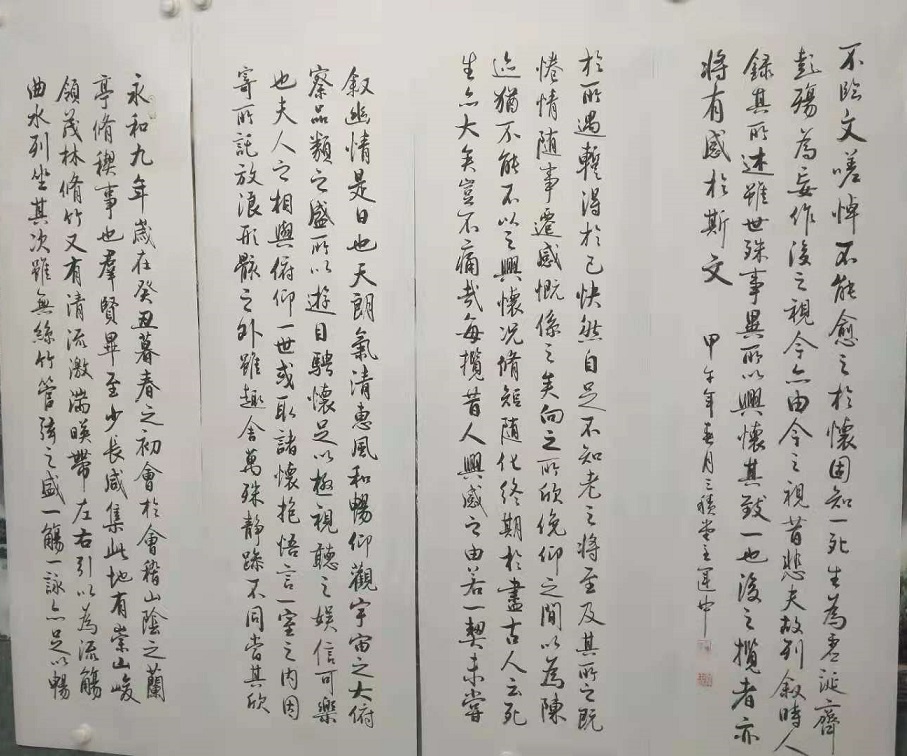 永和九年歲在癸丑暮春之初會於會稽山陰之蘭
亭脩稧事也羣賢畢至少長咸集此地有崇山峻
領茂林脩竹又有清流激湍暎帶左右引以為流觴
曲水列坐其次雖無絲竹管弦之盛一觴一詠亦足以暢
叙幽情是日也天朗氣清惠風和暢仰觀宇宙之大俯
察品類之盛所以遊目騁懷足以極視聽之娛信可樂
也夫人之相與俯仰一世或取諸懷抱悟言一室之內因
寄所託放浪形骸之外雖趣舍萬殊靜躁不同當其欣
於所遇蹔得於己快然自足不知老之將至及其所之既
惓情隨事遷感慨係之矣向之所欣俛仰之間以為陳
迹猶不能不以之興懷況脩短隨化終期於盡古人云死
生亦大矣豈不痛哉每攬昔人興感之由若一契未嘗
不臨文嗟悼不能愈之於懷固知一死生為虛誕齊
彭殤為妄作後之視今亦由今之視昔悲夫故列叙時人
錄其所述雖世殊事異所以興懷其致一也後之攬者亦
將有感於斯文 甲午年春月三堂主運中